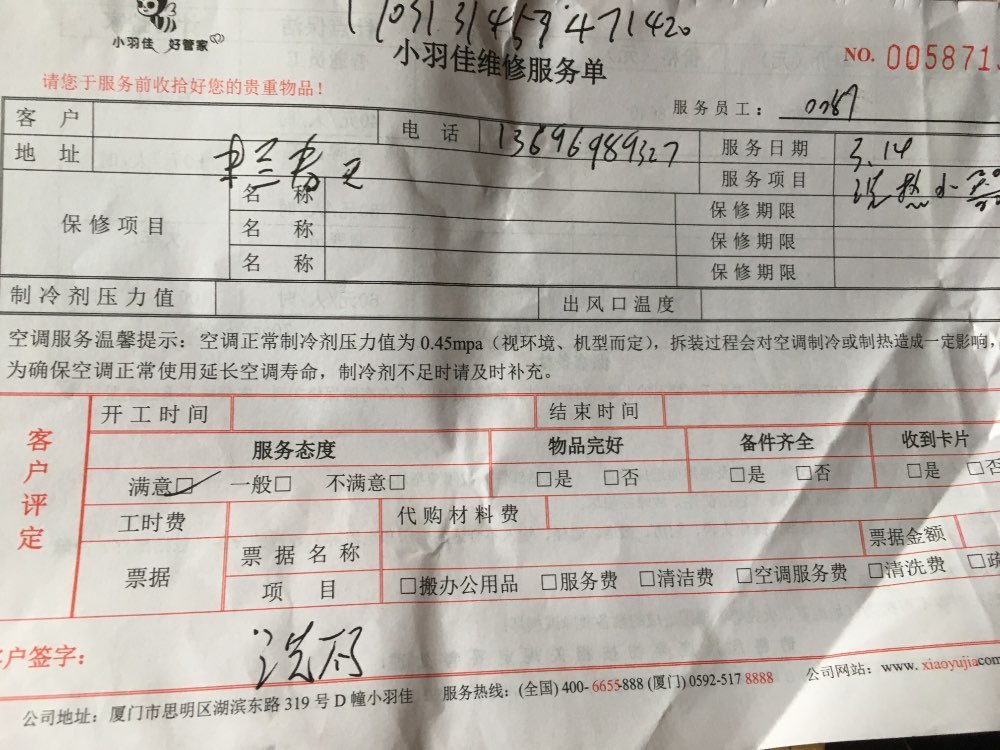 小羽佳 好管家
小羽佳维修服务单
NO. 005871
请您于服务前收拾好您的贵重物品！
服务员工： 0287
客户 电话 13696989327 服务日期 3.14
地址 服务项目 洗热
保修项目 名称 保修期限
名称 保修期限
名称 保修期限
制冷剂压力值 出风口温度
空调服务温馨提示：空调正常制冷剂压力值为 0.45mpa（视环境、机型而定），拆装过程会对空调制冷或制热造成一定影响，
为确保空调正常使用延长空调寿命，制冷剂不足时请及时补充。
客户评定
开工时间 结束时间
服务态度 物品完好 备件齐全 收到卡片
满意□ 一般□ 不满意□ □是 □否 □是 □否 □是 □否
工时费 代购材料费
票据 票据名称 票据金额
项目 □搬办公用品 □服务费 □清洁费 □空调服务费 □清洗费 □疏
客户签字：
公司地址：厦门市思明区湖滨东路 319 号 D 幢小羽佳 服务热线：(全国) 400- 6655-888 (厦门) 0592-517 8888 公司网站：www. xiaoyujia.com